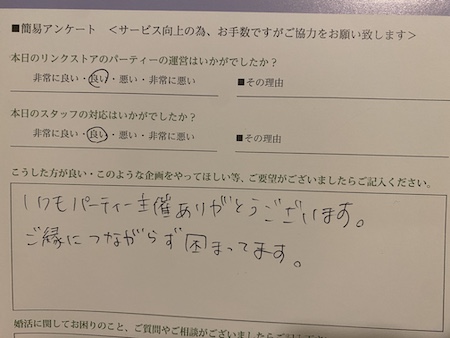 ■簡易アンケート ＜サービス向上の為、お手数ですがご協力をお願い致します＞
本日のリンクストアのパーティーの運営はいかがでしたか？
非常に良い・良い・悪い・非常に悪い ■その理由
本日のスタッフの対応はいかがでしたか？
非常に良い・良い・悪い・非常に悪い ■その理由
こうした方が良い・このような企画をやってほしい等、ご要望がございましたらご記入ください。
いつもパーティー主催ありがとうございます。
ご縁につながらず困まってます。
婚活に関してお困りのこと、ご質問やご相談がございましたら